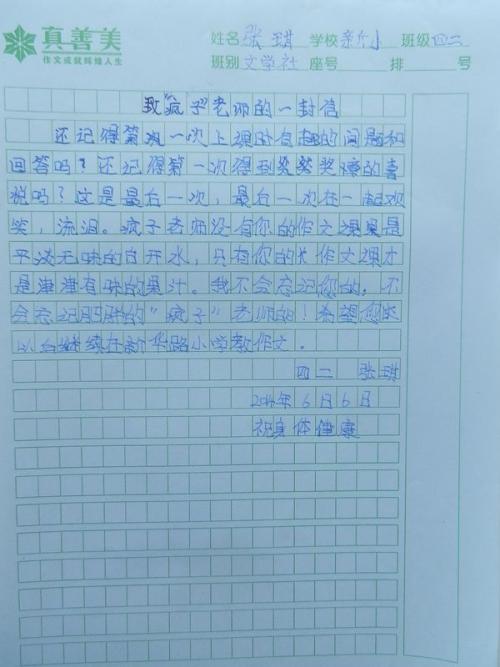 真善美
作文成就辉煌人生
姓名 张琪 学校 新小 班级 四二
班别 文学社 座号 排 号
致"疯子"老师的一封信
还记得第一次上课时有趣的问题和
回答吗?还记得第一次得到奖励的喜
悦吗?这是最后一次,最后一次在一起欢
笑,流泪。疯子老师没有你的作文课是
平淡无味的白开水,只有你的作文课才
是津津有味的果汁。我不会忘记您的,不
会忘记胖胖的"疯子"老师的!希望您
以后继续在新华路小学教作文.
四二 张琪
2014年6月6日
祝身体健康